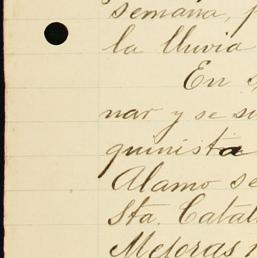 semana, p
la lluvia
En s
nar y se su
quinista
Alamo se
Sta. Catal
Mejoras